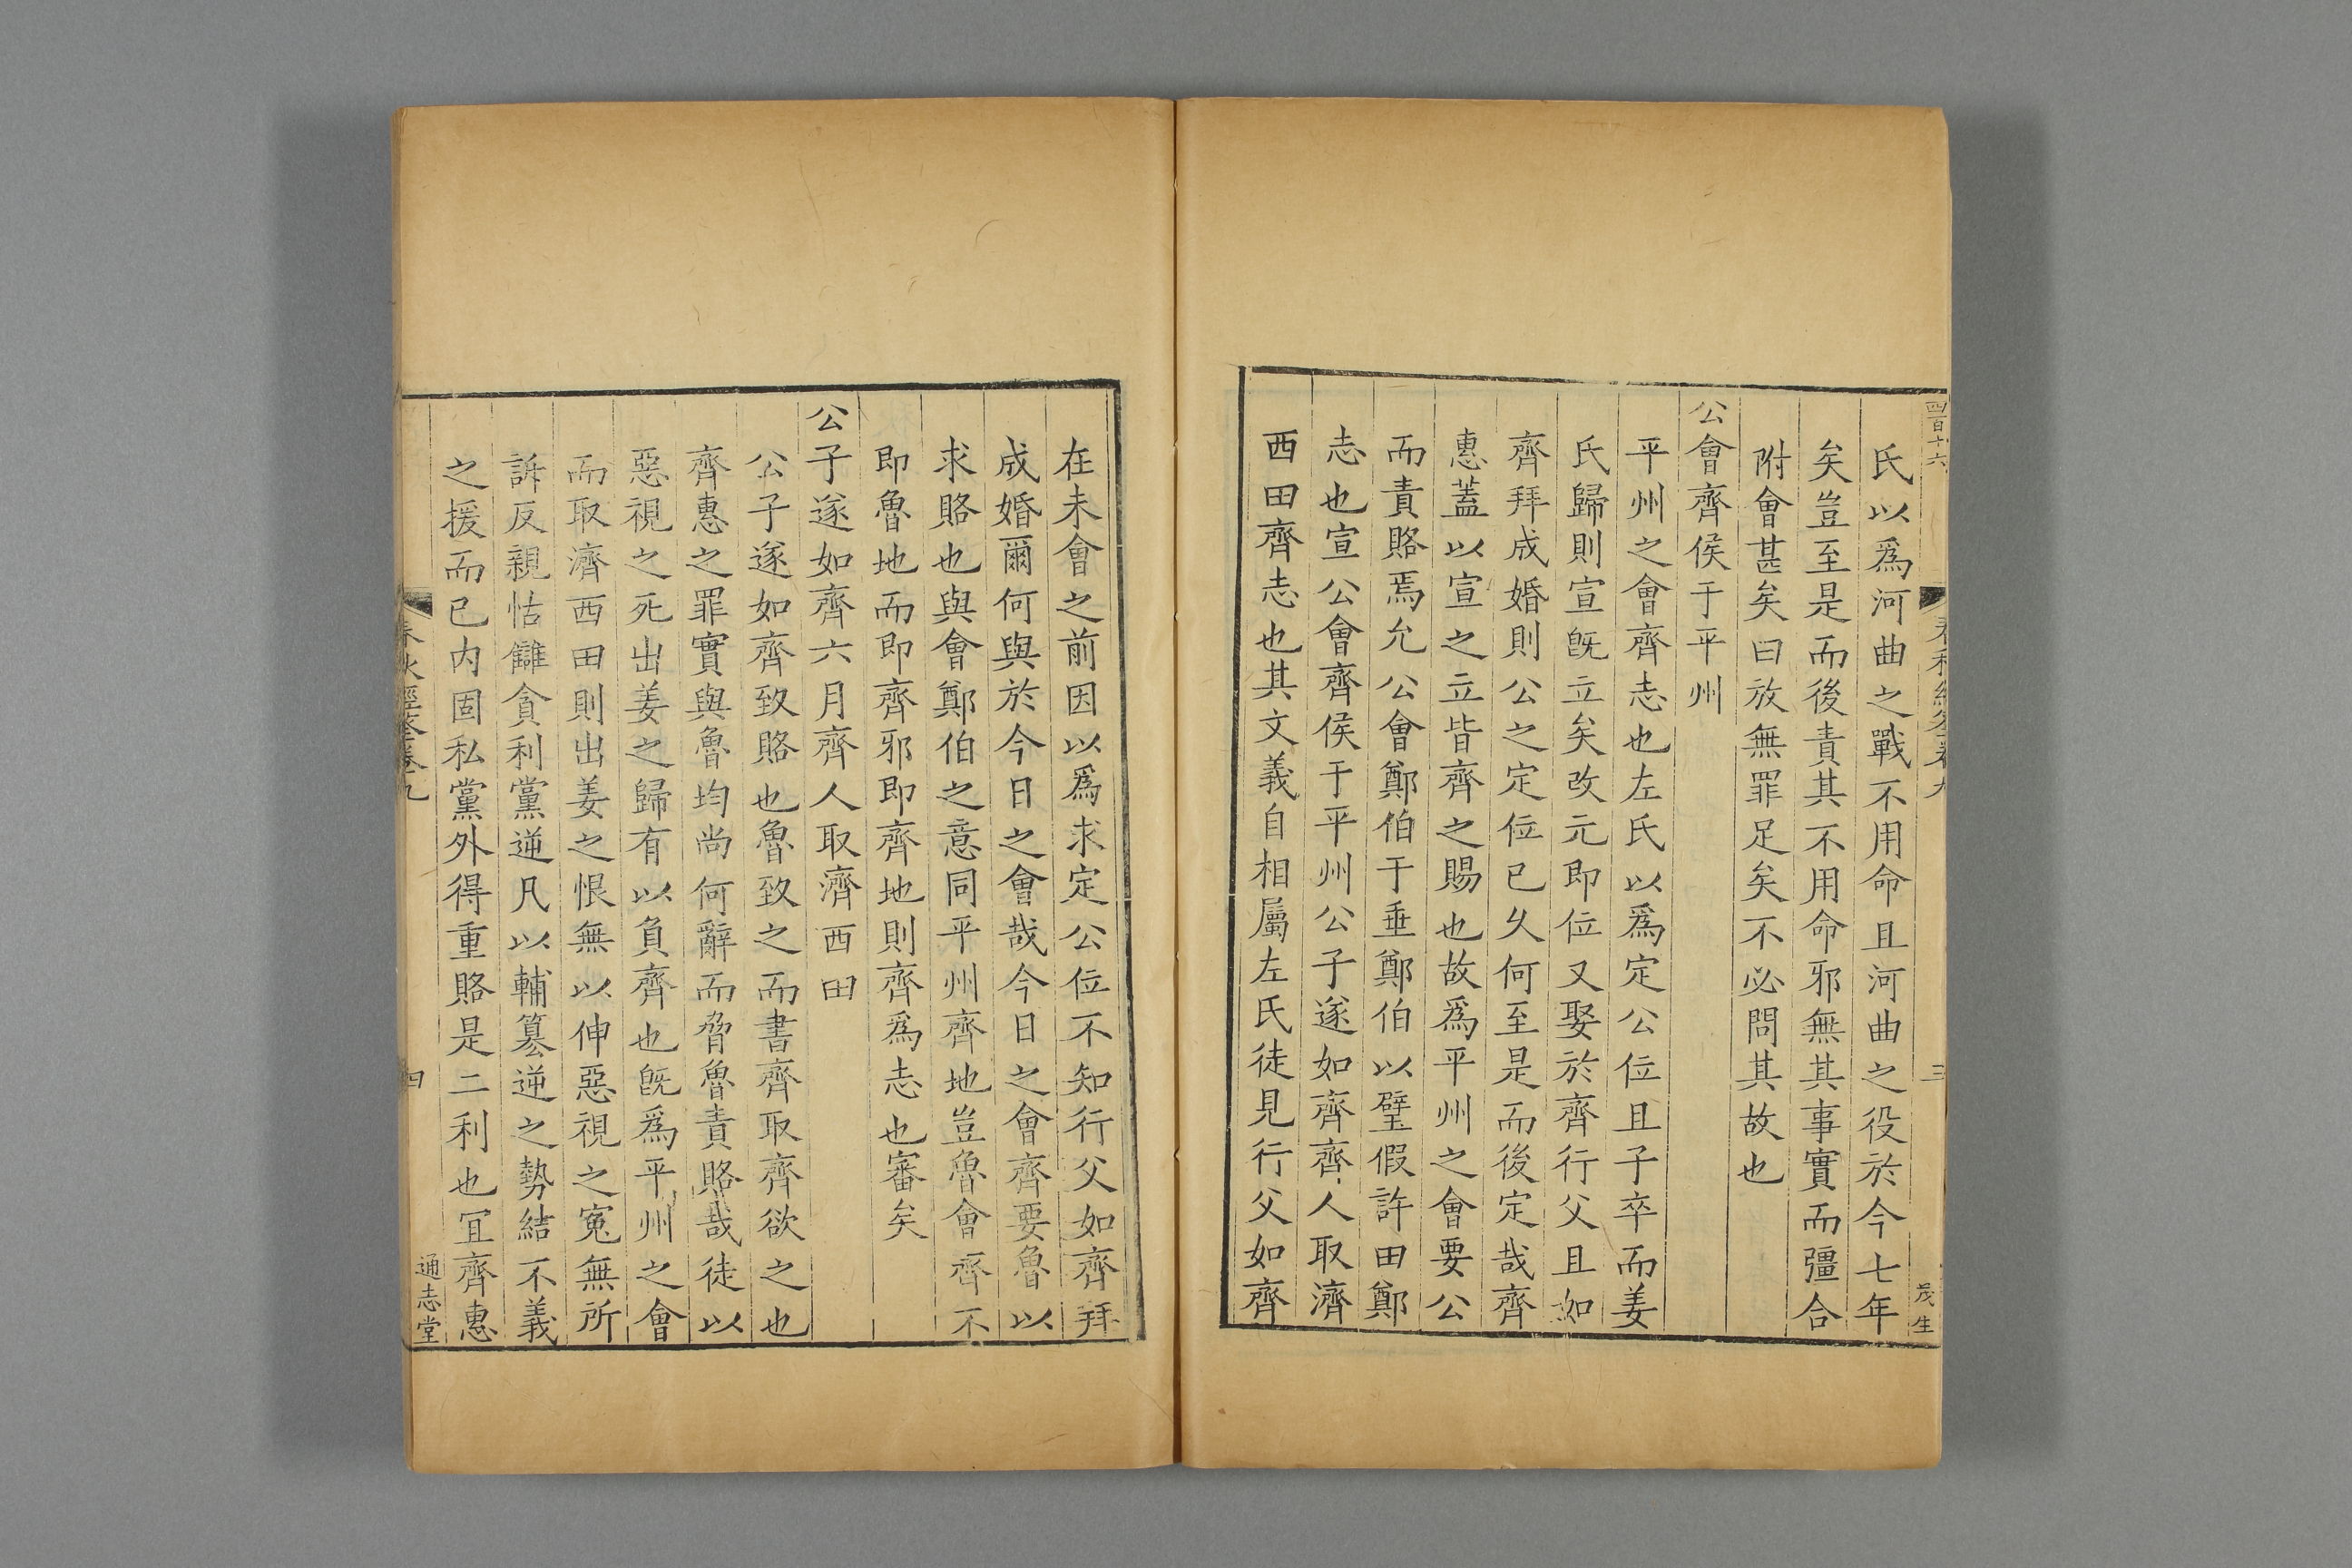 四百十六
春秋經筌卷九
三
茂生
氏以爲河曲之戰不用命且河曲之役於今七年
矣豈至是而後責其不用命邪無其事實而彊合
附會甚矣曰放無罪足矣不必問其故也
公會齊侯于平州
平州之會齊志也左氏以爲定公位且子卒而姜
氏歸則宣旣立矣改元即位又娶於齊行父且如
齊拜成婚則公之定位已久何至是而後定哉齊
惠蓋以宣之立皆齊之賜也故爲平州之會要公
而責賂焉允公會鄭伯于垂鄭伯以璧假許田鄭
志也宣公會齊侯于平州公子遂如齊齊人取濟
西田齊志也其文義自相屬左氏徒見行父如齊
在未會之前因以爲求定公位不知行父如齊拜
成婚爾何與於今日之會哉今日之會齊要魯以
求賂也與會鄭伯之意同平州齊地豈魯會齊不
即魯地而即齊邪即齊地則齊爲志也審矣
公子遂如齊六月齊人取濟西田
公子遂如齊致賂也魯致之而書齊取齊欲之也
齊惠之罪實與魯均尚何辭而脅魯責賂哉徒以
惡視之死出姜之歸有以負齊也旣爲平州之會
而取濟西田則出姜之恨無以伸惡視之冤無所
訴反親怙讎貪利黨逆凡以輔簒逆之勢結不義
之援而已内固私黨外得重賂是二利也冝齊惠
春秋經筌卷九
四
通志堂